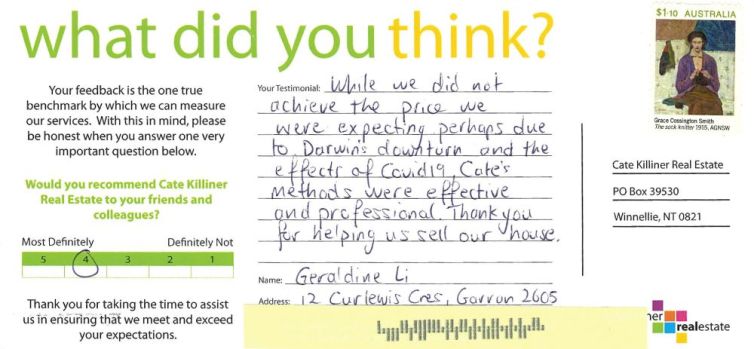 what did you think?
Your feedback is the one true
benchmark by which we can measure
our services. With this in mind, please
be honest when you answer one very
important question below.
Would you recommend Cate Killiner
Real Estate to your friends and
colleagues?
Most Definitely Definitely Not
5 4 3 2 1
Thank you for taking the time to assist
us in ensuring that we meet and exceed
your expectations.
Your Testimonial: While we did not
achieve the price we
were expecting perhaps due
to Darwin's downturn and the
effects of Covid19, Cate's
methods were effective
and professional. Thank you
for helping us sell our house.
Name: Geraldine Li
Address: 12 Curlewis Cres, Garran 2605
$1·10 AUSTRALIA
Grace Cossington Smith
The sock knitter 1915, AGNSW
Cate Killiner Real Estate
PO Box 39530
Winnellie, NT 0821
ner
realestate